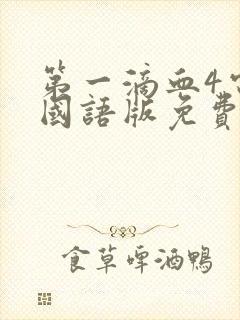 第一滴血4
國語版免費
食草啤酒鴨